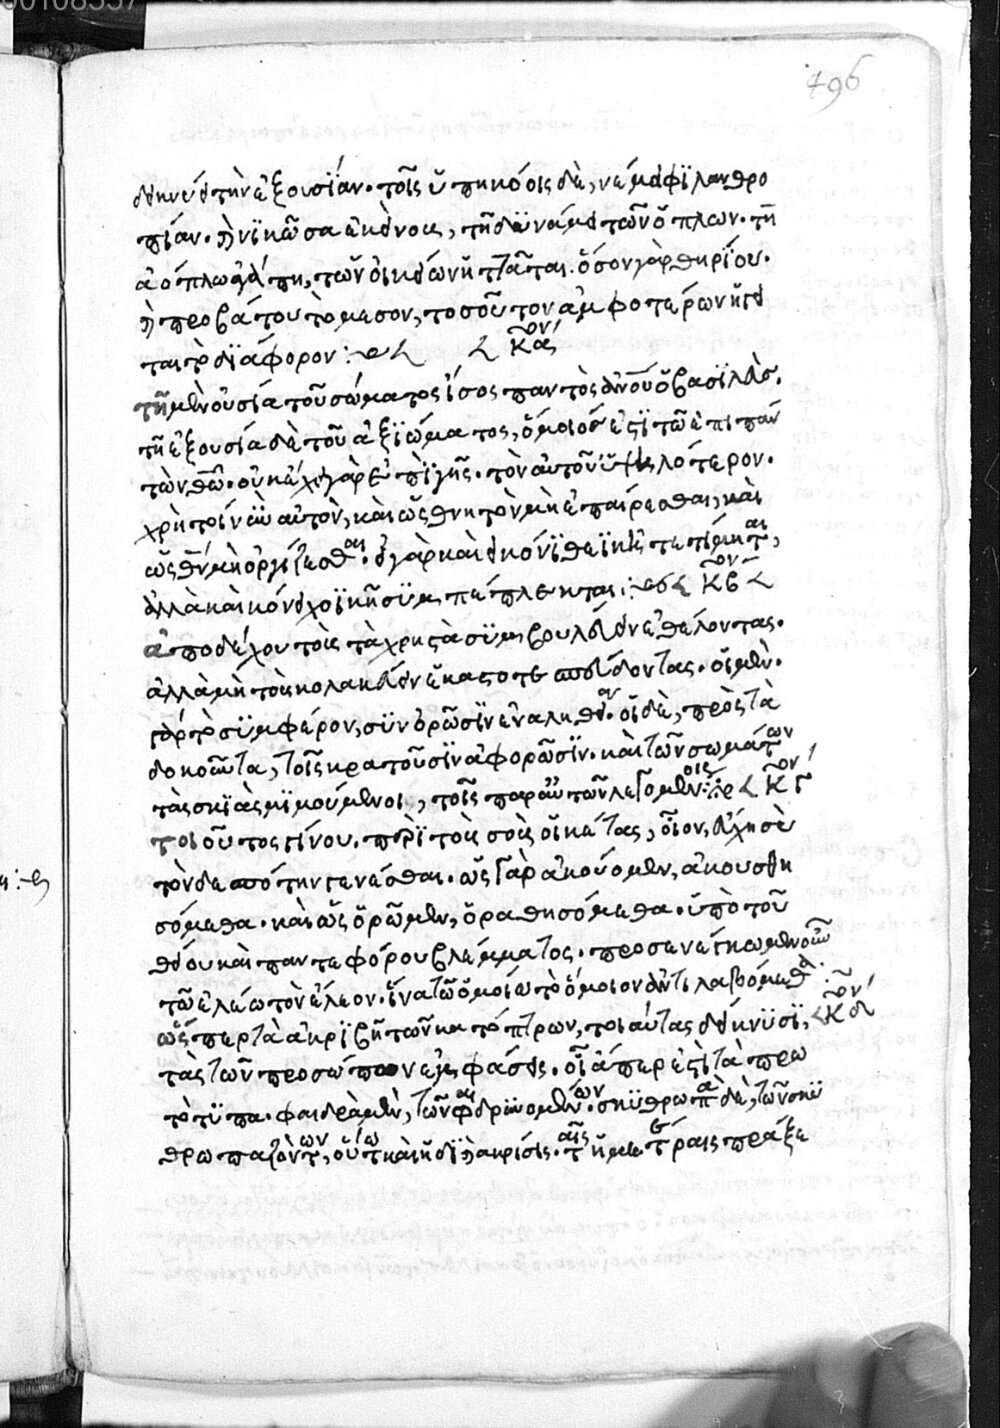 496
δεικνύει τὴν ἐξουσίαν. τοῖς ὑπηκόοις δὲ, νέμει φιλανθρο
πίαν. ἢ νικῶσα ἐκείνους, τῇ δυνάμει τῶν ὅπλων. τῇ
ἀόπλω ἀγάπη, τῶν οἰκείων ἡττᾶται. ὅσον γὰρ θηρίου.
ἢ προβάτου τὸ μεσον, τοσοῦτον ἀμφοτέρων ἡγεῖ
ται τὸ διάφορον :~ κα̅ον
τῇ μὲν οὐσία τοῦ σώματος ἴσος παντὸς ἀνου ὁ βασιλεὺς.
τῇ ἐξουσία δὲ τοῦ ἀξιώματος, ὅμοιος ἐστὶ τῶ ἐπι πάν
των θῶ. οὐκ ἔχει γὰρ ἐπὶ γῆς. τὸν αὐτοῦ ὑψηλότερον.
χρὴ τοίνυν αὐτὸν, καὶ ὡς θνητὸν μὴ ἐπαίρεσθαι, καὶ
ὡς θν μὴ ὀργίζεσθαι. εἰ γὰρ καὶ εἰκόνι θεϊκῆ τετίμηται,
ἀλλὰ καὶ κόνει χοϊκῆ συμπέπλεκται :~ κβ̅ον
ἀποδέχου τοὺς τὰ χρηστὰ συμβουλεύειν ἐθέλοντας.
ἀλλὰ μὴ τοὺς κολακεύειν ἑκάστοτε σπεύδοντας. οἱ μὲν.
γὰρ τὸ συμφέρον, συνορῶσιν ἐν ἀληθεία. οἱ δὲ, πρὸς τὰ
δοκοῦντα, τοῖς κρατοῦσιν ἀφορῶσιν. καὶ τῶν σωμάτων
τὰς σκιὰς μιμούμενοι, τοῖς παρ αὐτῶν λεγομένοις :~ κγ̅ον
τοιοῦτος γίνου. περὶ τοὺς σοὺς οἰκέτας, οἷον, εὔχη σὲ
τὸν δεσπότην γενέσθαι. ὡς γὰρ ἀκούομεν, ἀκουσθη
σόμεθα. καὶ ὡς ὁρῶμεν, ὁραθησόμεθα. ὑπὸ τοῦ
θείου καὶ παντεφόρου βλέμματος. προσενέγκωμεν οὖν
τῶ ἐλέω τὸν ἔλεον. ἵνα τῶ ὁμοίω τὸ ὅμοιον ἀντιλαβόμεθα :
ὥσπερ τὰ ἀκριβῆ τῶν κατόπτρων, τοιαύτας δείκνυσι, κδ̅ον
τὰς τῶν προσώπων ἐμφάσεις. οἷα περ ἐστὶ τὰ πρω
τότυπα. φαιδρὰ μὲν, τῶν φαιδρυνομένων. σκυθρωπὰ δὲ, τῶν σκυ
θρωπαζόντων, οὕτω καὶ ἡ δικαία κρίσις. ταῖς ἡμετέραις πράξε